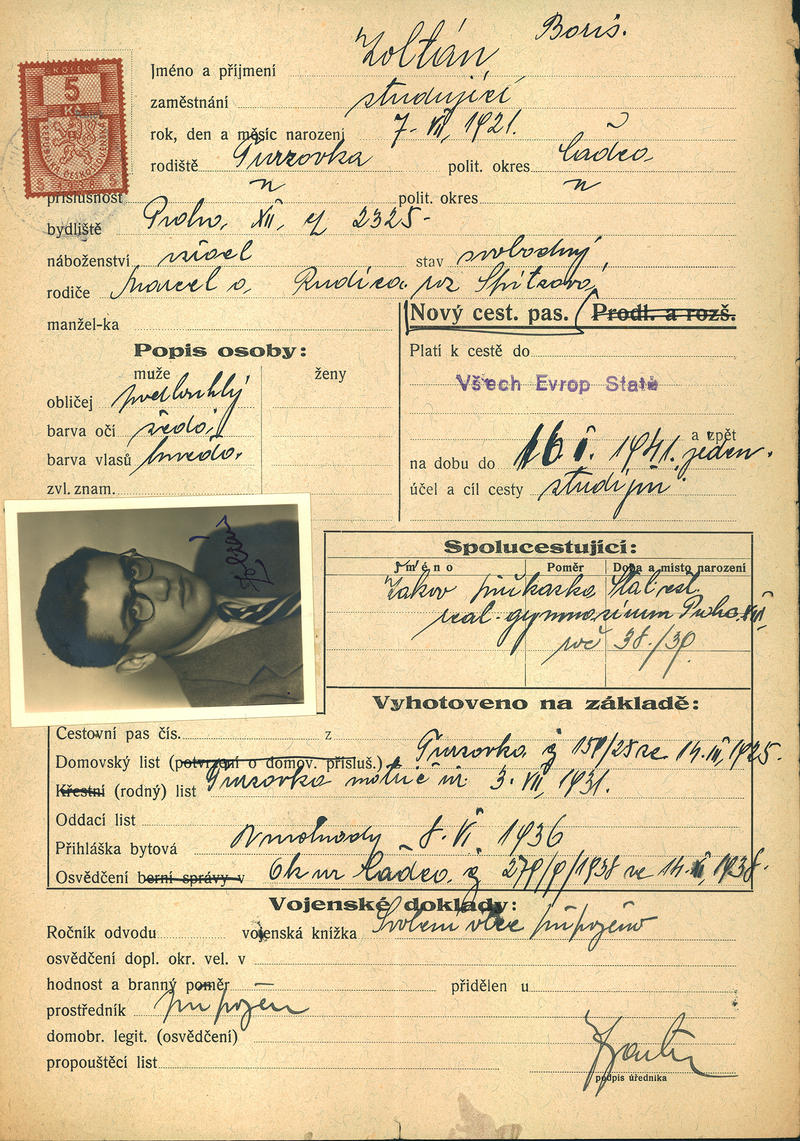 Boris.
Jméno a příjmení Zoltán
5
Kč
zaměstnání studující
rok, den a měsíc narození 7. VII, 1921.
rodiště Turzovka polit. okres Čadca
příslušnost " polit. okres "
bydliště Praha, XII, 2325
náboženství izrael stav svobodný
rodiče Marcel a Rudica roz Spitzová
manžel-ka
Nový cest. pas. Prodl. a rozš.
Popis osoby:
muže ženy
obličej podlouhlý
barva očí šedá
barva vlasů hnědá
zvl. znam.
Platí k cestě do
Všech Evrop Států
a zpět
na dobu do 16 I. 1941. jeden
účel a cíl cesty studijní
Zoltán
Spolucestující:
Jméno Poměr Doba a místo narození
průkazka Stát. čsl.
real. gymnasium Praha XII,
38./39
Vyhotoveno na základě:
Cestovní pas čís. z
Domovský list (potvrzení o domov. přísluš.) Turzovka
Křestní (rodný) list Turzovka 3. VII, 1931.
Oddací list
Přihláška bytová 8. VI 1936
Osvědčení berní správy v Čadca 1938.
Vojenské doklady:
Ročník odvodu vojenská knížka Svolení otce připojeno
osvědčení dopl. okr. vel. v
hodnost a branný poměr přidělen u
prostředník připojen
domobr. legit. (osvědčení)
propouštěcí list
podpis úředníka